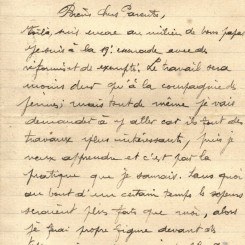 Biens chers Parents,
Voilà, suis encore au milieu de bons papas
je suis à la 19e escouade avec des
réformés et de exemptés. Le travail sera
moins dur qu'à la compagnie de
jeunes; mais tout de même je vais
demander à y aller car ils font des
travaux plus intéressants, puis je
veux apprendre et c'est par la
pratique que je saurais. Sans quoi
au bout d'un certain temps le sapeurs
seraient plus forts que moi, alors
je ferai propre figure devant de